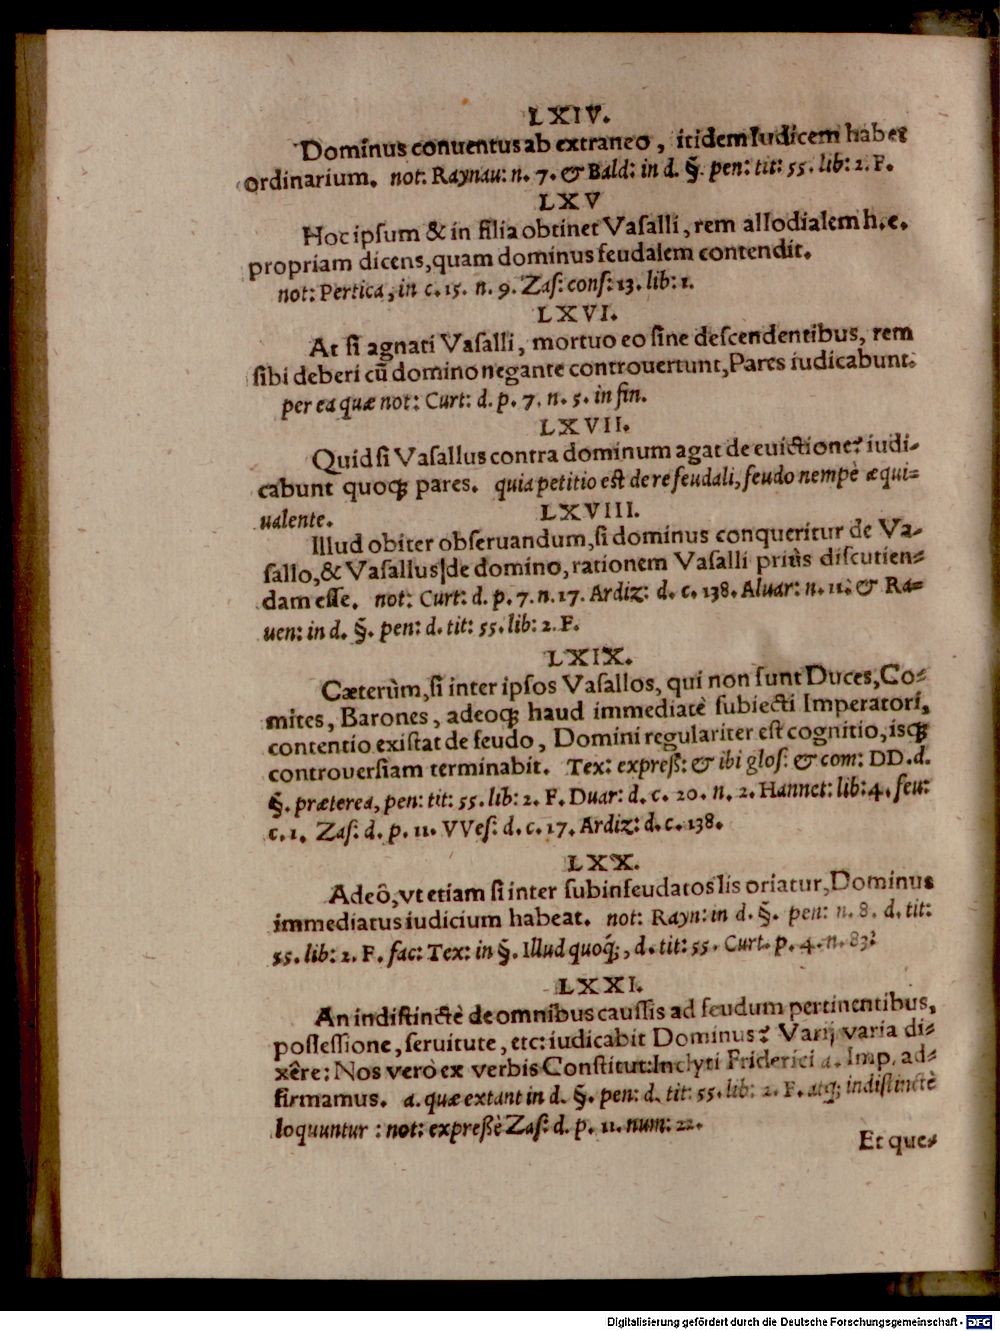 LXIV.
Dominus conuentus ab extraneo, itidem Iudicem habet
ordinarium. not: Raynau: n. 7. & Bald: in d. §. pen: tit: 55. lib: 2. F.
LXV
Hoc ipſum & in filia obtinet Vaſalli, rem allodialem h. e.
propriam dicens, quam dominus feudalem contendit.
not: Pertica, in c. 15. n. 9. Zaſ: conſ: 13. lib: 1.
LXVI.
At ſi agnati Vaſalli, mortuo eo ſine deſcendentibus, rem
ſibi deberi cū domino negante controuertunt, Pares iudicabunt.
per ea quæ not: Curt: d. p. 7. n. 5. in fin.
LXVII.
Quid ſi Vaſallus contra dominum agat de euictione? iudi-
cabunt quoq; pares. quia petitio eſt de re feudali, feudo nempè æqui-
ualente.
LXVIII.
Illud obiter obſeruandum, ſi dominus conqueritur de Va-
ſallo, & Vaſallus|de domino, rationem Vaſalli priùs diſcutien-
dam eſſe. not: Curt: d. p. 7. n. 17. Ardiz: d. c. 138. Aluar: n. 11. & Ra-
uen: in d. §. pen: d. tit: 55. lib: 2. F.
LXIX.
Cæterùm, ſi inter ipſos Vaſallos, qui non ſunt Duces, Co-
mites, Barones, adeoq; haud immediatè ſubiecti Imperatori,
contentio exiſtat de feudo, Domini regulariter eſt cognitio, isq;
controuerſiam terminabit. Tex: expreß: & ibi gloſ: & com: DD. d.
§. præterea, pen: tit: 55. lib: 2. F. Duar: d. c. 20. n. 2. Hannet: lib: 4. feu:
c. 1. Zaſ: d. p. 11. VVeſ: d. c. 17. Ardiz: d. c. 138.
LXX.
Adeô, vt etiam ſi inter ſubinfeudatos lis oriatur, Dominus
immediatus iudicium habeat. not: Rayn: in d. §. pen: n. 8. d. tit:
55. lib: 2. F. fac: Tex: in §. Illud quoq;, d. tit: 55. Curt. p. 4. n. 83:
LXXI.
An indiſtinctè de omnibus cauſſis ad feudum pertinentibus,
poſſeſſione, ſeruitute, etc: iudicabit Dominus? Varij varia di-
xêre: Nos verò ex verbis Conſtitut: Inclyti Friderici a. Imp. ad-
firmamus. a. quæ extant in d. §. pen: d. tit: 55. lib: 2. F. atq; indiſtinctè
loquuntur: not: expreßè Zaſ: d. p. 11. num: 22.
Et que-
Digitalisierung gefördert durch die Deutsche Forschungsgemeinschaft - DFG